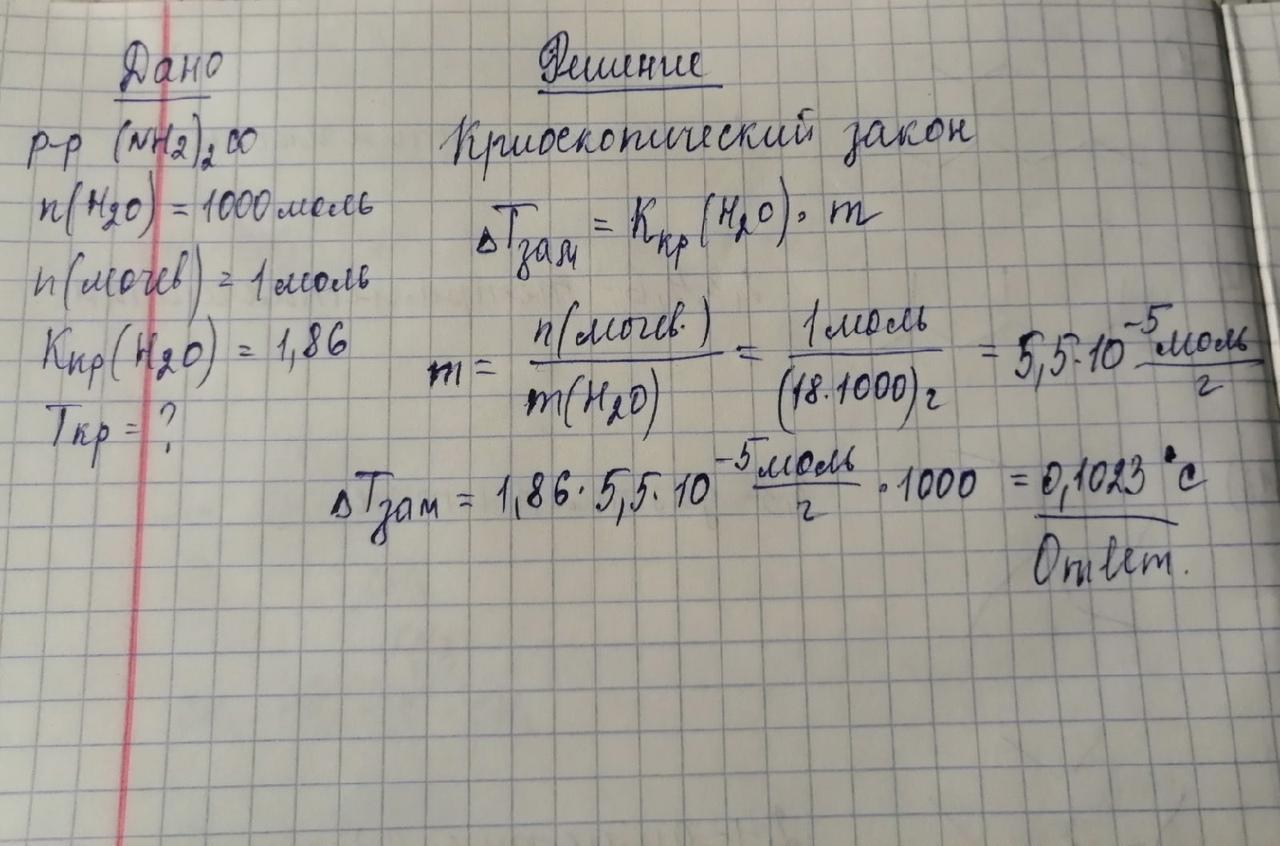 Дано
р-р (NH2)2CO
n(H2O) = 1000 моль
n(мочев) = 1 моль
Kкр(H2O) = 1,86
Tкр = ?
Решение
Криоскопический закон
ΔTзам = Kкр(H2O) · m
m = n(мочев.) / m(H2O) = 1 моль / (18·1000)г = 5,5·10⁻⁵ моль/г
ΔTзам = 1,86 · 5,5·10⁻⁵ моль/г · 1000 = 0,1023 °C
Ответ.